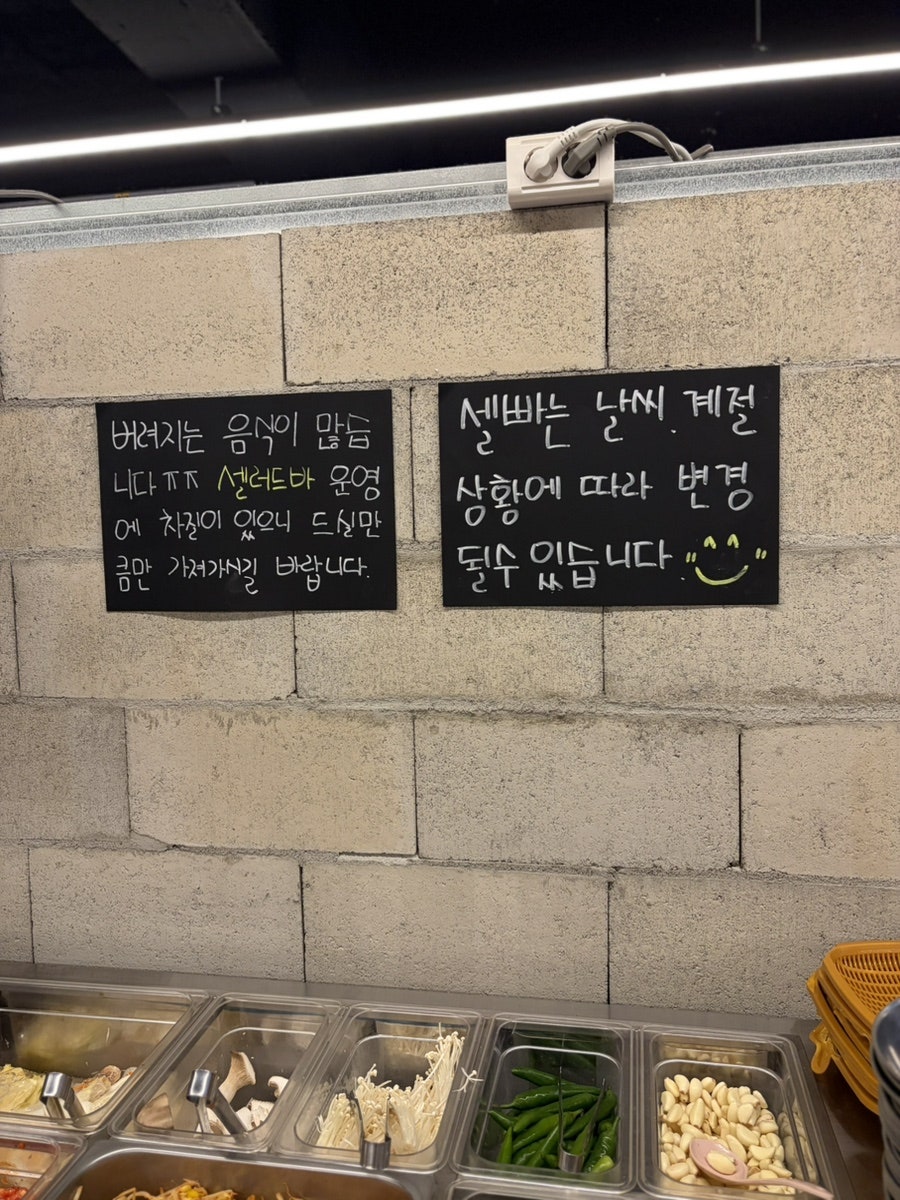 버려지는 음식이 많습
니다ㅠㅠ 셀러드바 운영
에 차질이 있으니 드실만
큼만 가져가시길 바랍니다.
셀빠는 날씨. 계절
상황에 따라 변경
될수 있습니다.